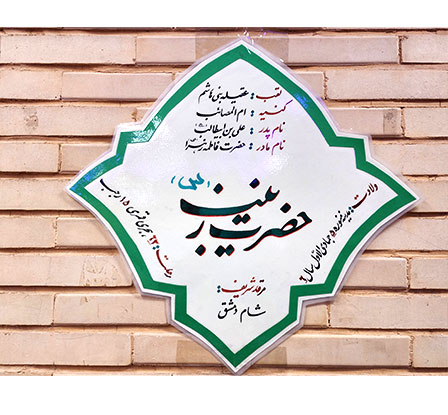 لقب: عقیله بنی هاشم
کنیه: ام المصائب
نام پدر: علی بن ابیطالب
نام مادر: حضرت فاطمه زهرا
حضرت زینب (س)
ولادت: مدینه منوره ۵ جمادی الاول سال ۶
هجری قمری ۱۵ رجب
مرقد شریف:
شام دمشق